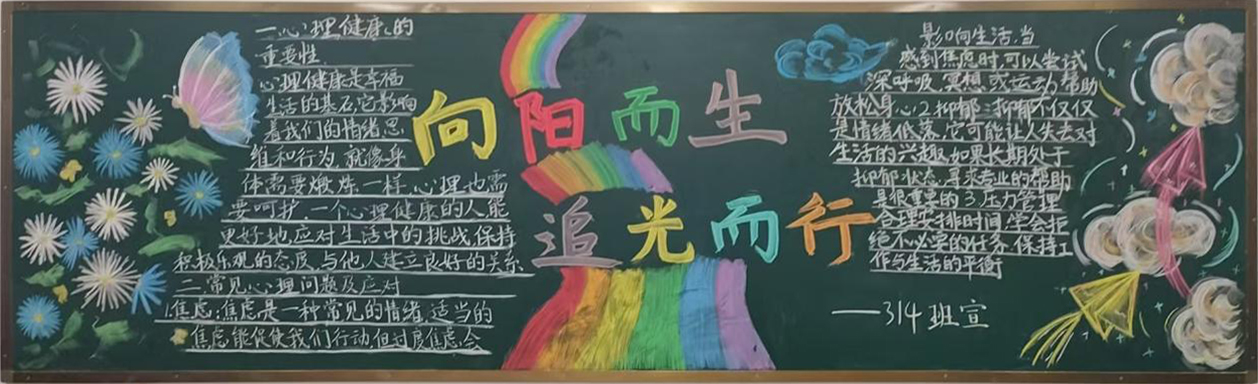 一、心理健康的
重要性
心理健康是幸福
生活的基石，它影响
着我们的情绪思
维和行为，就像身
体需要煅炼一样，心理也需
要呵护，一个心理健康的人能
更好地应对生活中的挑战，保持
积极乐观的态度，与他人建立良好的关系
二、常见心理问题及应对
1.焦虑：焦虑是一种常见的情绪，适当的
焦虑能促使我们行动，但过度焦虑会
向阳而生
追光而行
影响生活，当
感到焦虑时，可以尝试
深呼吸、冥想或运动，帮助
放松身心。2.抑郁：抑郁不仅仅
是情绪低落，它可能让人失去对
生活的兴趣，如果长期处于
抑郁状态，寻求专业的帮助
是很重要的。3.压力管理
合理安排时间，学会拒
绝不必要的任务，保持工
作与生活的平衡
——314班宣